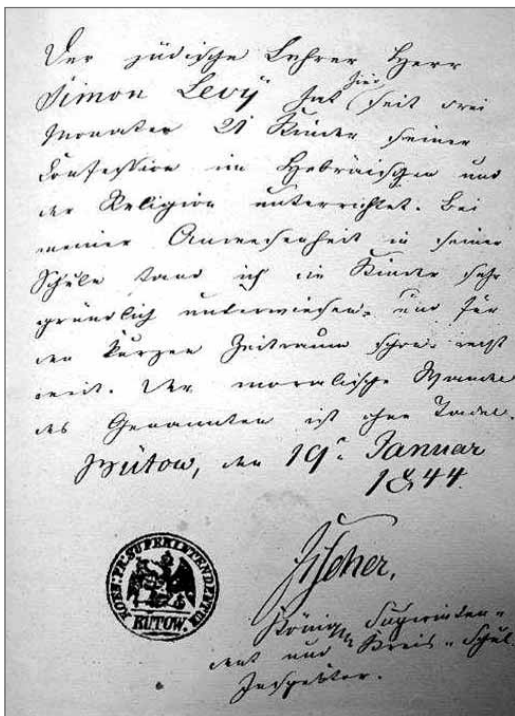 Der jüdische Lehrer Herr
Simon Levÿ hat hier seit drei
Monaten 21 Kinder seiner
Confession im Hebräischen und
der Religion unterrichtet. Bei
meiner Anwesenheit in seiner
Schule fand ich die Kinder sehr
gründlich unterwiesen, und für
den kurzen Zeitraum schon recht
weit. Der moralische Wandel
des Genannten ist ohne Tadel.
Bütow, den 19n Januar
1844.
Fischer,
Königlr Superinten-
dent und Kreis-Schul-
Inspektor.
KOEN: PR: SUPERINTENDENTUR
BUTOW.